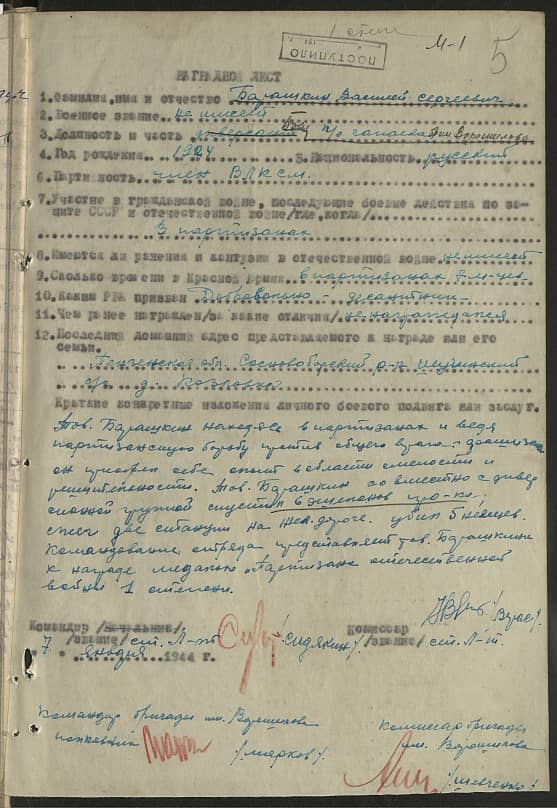 1 степ
ПОСТУПИЛО
М-1
5
НАГРАДНОЙ ЛИСТ
1. Фамилия, имя и отчество Барашкин Василий Сергеевич
2. Военное звание не имеет
3. Должность и часть п/о Чапаева им Ворошилова
4. Год рождения 1924 5. Национальность русский
6. Партийность член ВЛКСМ.
7. Участие в гражданской войне, последующие боевые действия по за-
щите СССР и отечественной войне/где, когда/
В партизанах
8. Имеются ли ранения и контузии в отечественной войне не имеет
9. Сколько времени в Красной Армии в партизанах м-цев
10. Каким РВК призван Добровольно - десантник
11. Чем ранее награжден/за какие отличия/ не награждался
12. Последний домашний адрес представляемого к награде или его
семьи.
Пензенская обл. Сосновоборский р-н
д.
Краткие конкретные изложения личного боевого подвига или заслуг.
Тов. Барашкин находясь в партизанах и ведя
партизанскую борьбу против общего врага -
он приобрел себе опыт в области смелости и
решительности. Тов. Барашкин совместно с дивер
сионной группой спустил 6 эшелонов пр-ка,
сжег две станции на жел. дороге. убил 5 немцев.
Командование отряда представляет тов. Барашкина
к награде медалью "Партизана отечественной
войны 1 степени.
Командир /Начальник/ /Сидякин/ Комиссар
/звание/ ст. Л-т /звание/ ст. Л-т
7 января 1944 г.
Командир бригады им. Ворошилова
/Марков/
Комиссар бригады
им. Ворошилова
/Шевченко/